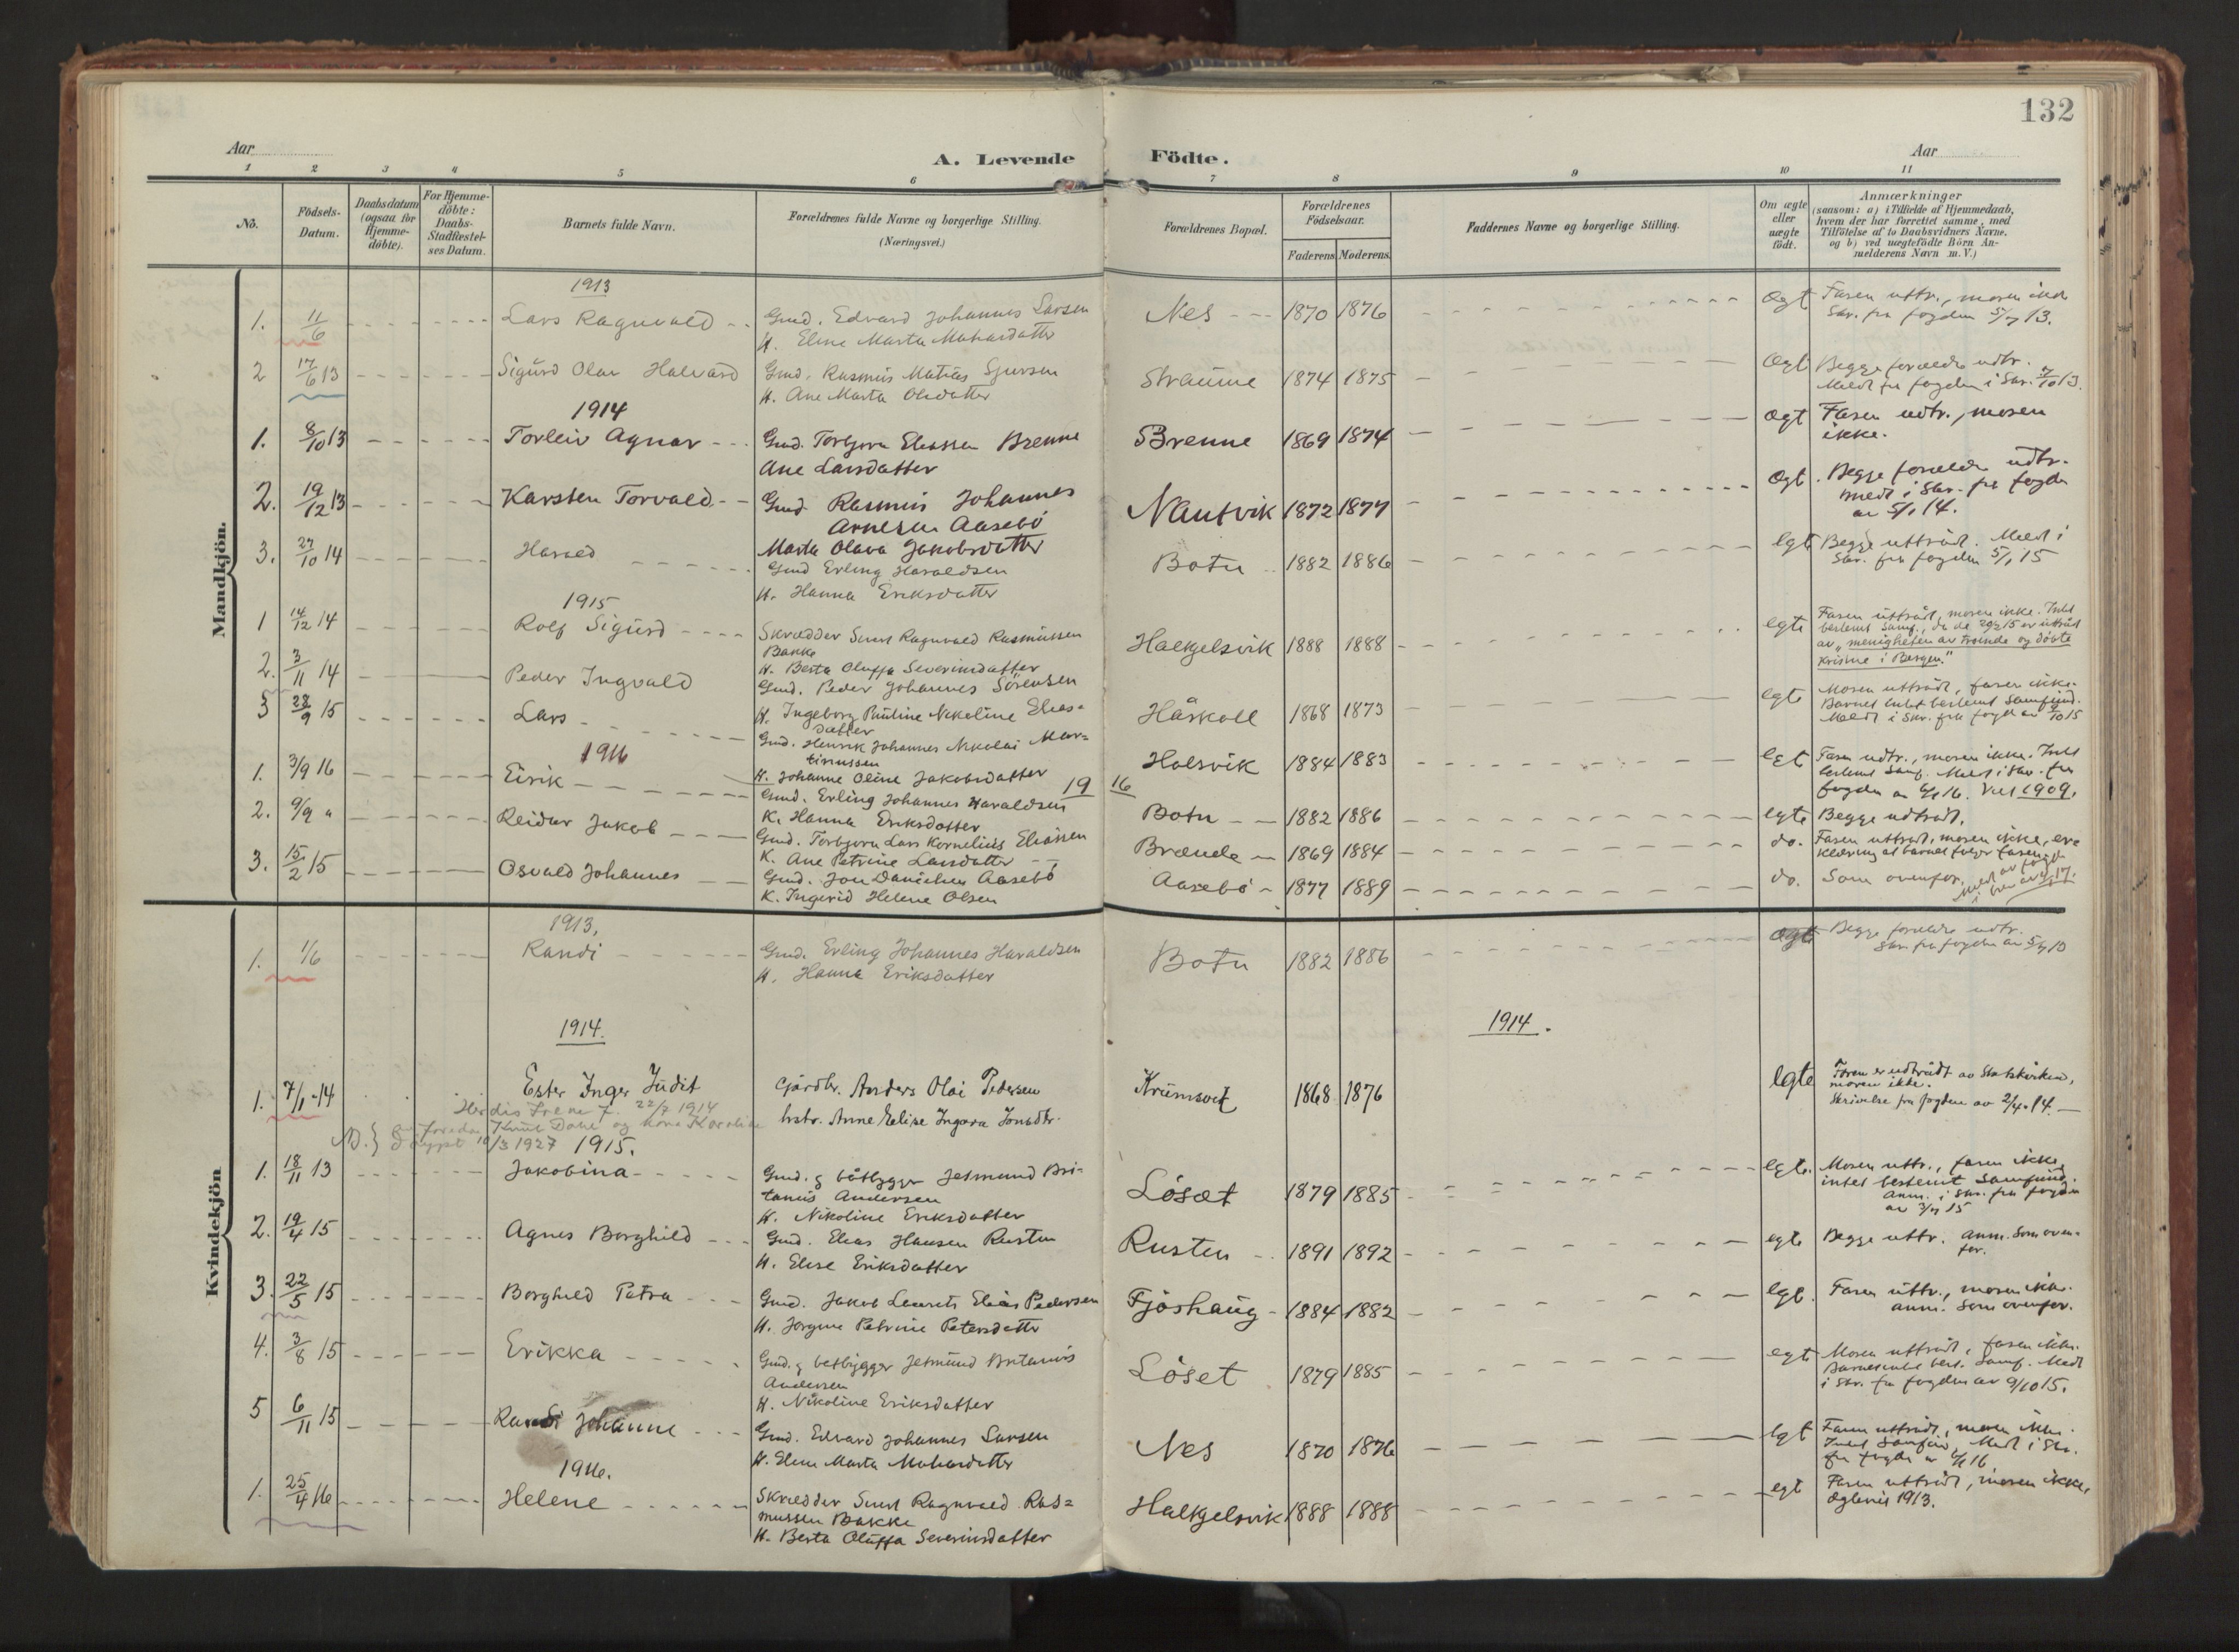 132
Aar
A. Levende Födte.
Aar
1 2 3 4 5 6 7 8 9 10 11
No.
Födsels-
Datum.
Daabsdatum
(ogsaa for
Hjemme-
döbte).
For Hjemme-
döbte:
Daabs-
Stadfæstel-
ses Datum.
Barnets fulde Navn.
Forældrenes fulde Navne og borgerlige Stilling.
(Næringsvei.)
Forældrenes Bopæl.
Forældrenes
Födselsaar.
Faderens Moderens
Faddernes Navne og borgerlige Stilling.
Om ægte
eller
uægte
födt.
Anmærkninger
(saasom: a) i Tilfælde af Hjemmedaab,
hvem der har forrettet samme, med
Tilföielse af to Daabsvidners Navne,
og b) ved uægtefödte Börn An-
melderens Navn m. V.)
Mandkjön.
1913
1. 11/6 Lars Ragnvald Gmd. Edvard Johannes Larsen
H. Eline Marta
Nes 1870 1876 Ægt Faren uttr., moren ikke
Skr. fra fogden 5/7 13.
2 17/6 13 Sigurd Olav Halvard Gmd. Rasmus Matias Sjursen
H. Ane Marta Olsdatter
Straume 1874 1875 Ægt Begge forældre udtr.
Meldt fra fogden i Skr. 7/10 13.
1914
1. 8/10 13 Torleiv Agnar Gmd. Torbjørn Eliassen Brenne
Ane Larsdatter
Brenne 1869 1874 Ægt Faren udtr., moren
ikke.
2. 19/12 13 Karsten Torvald Gmd Rasmus Johannes
Arnesen Aasebö
Marta Olava Jakobsdatter
Nautvik 1872 1877 Ægt. Begge forældre udtr.
meldt i Skr. fra fogden
av 5/1 14.
3. 27/10 14 Harald Gmd Erling Haraldsen
H. Hanna Eriksdatter
Botn 1882 1886 Egte Begge uttrådt. Meldt i
Skr. fra fogden 5/1 15
1915
1 14/12 14 Rolf Sigurd Skrædder Ragnvald Rasmussen
Bakke
H. Berta Oluffa Severinsdatter
Halkjelsvik 1888 1888 egte Faren uttrådt, moren ikke. Intet
bestemt Samf., av
av „menigheten av troende og döbte
kristne i Bergen."
2. 3/11 14 Peder Ingvald Gmd. Peder Johannes Sörensen
H. Ingeborg Pauline Nikoline Elias-
datter
Håskoll 1868 1873 egte Moren uttrådt, faren ikke.
Barnet intet bestemt Samfund.
Meldt i Skr. fra fogden av 9/10 15
3 28/9 15 Lars Gmd. Henrik Johannes Nikolai Mar-
tinussen
H. Johanne Oline Jakobsdatter
Holsvik 1884 1883 Egt Faren udtr., moren ikke. Intet
bestemt Samf. Meldt i Skr. fra
fogden av 16. Viet 1909.
1916
19 16
1. 3/9 16 Eirik Gmd. Erling Johannes Haraldsen
K. Hanna Eriksdatter
Botn 1882 1886 egte Begge udtrådt.
2. 9/9 " Reidar Jakob Gmd. Torbjørn Lars Kornelius Eliassen
K. Ane Petrine Larsdatter
Brænde 1869 1884 do. Faren uttrådt, moren ikke, er-
klæring at barnet følger faren.
3. 15/2 15 Osvald Johannes Gmd. Jon Danielsen Aasebö
K. Ingerid Helene Olsen
Aasebö 1877 1889 do. Som ovenfor.
Kvindekjön
1913.
1. 1/6 Randi Gmd. Erling Johannes Haraldsen
H. Hanna Eriksdatter
Botn 1882 1886 Ægte Begge forældre udtr.
Skr. fra fogden av 5/7 13
1914.
1914.
1. 7/1 14 Ester Inger Judit Gårdbr. Anders Olai Pedersen
hstr. Anne Elise Ingara Jonsdtr.
1868 1876 Egte Faren er udtrådt av Statskirken,
moren ikke.
Skrivelse fra fogden av 2/4 14.
Herdis Irene f. 22/7 1914
forældre Knut Dahl og kona Karoline
N.B. } Døypt 10/3 1927
1915.
1. 18/11 13 Jakobina Gmd. & båtbygger Jetmund Bri-
tanus Andersen
H. Nikoline Eriksdatter
Lösæt 1879 1885 Egte. Moren uttr., faren ikke,
intet bestemt Samfund.
Anm. i Skr. fra fogden
av 3/7 15
2. 19/4 15 Agnes Borghild Gmd. Elias Hansen Rusten
H. Elise Eriksdatter
Rusten 1891 1892 egte Begge uttr. Anm. som oven-
for.
3. 22/5 15 Borghild Petra Gmd. Jakob Laurits Elias Pedersen
H. Jørgine Petrine Petersdatter
Fjöshaug 1884 1882 Egt. Faren uttr., moren ikke.
anm. som ovenfor.
4. 3/8 15 Erikka Gmd. & båtbygger Jetmund Britanus
Andersen
H. Nikoline Eriksdatter
Löset 1879 1885 egte Moren uttrådt, faren ikke.
Barnet intet best. Samf. Meldt
i Skr. fra fogden av 9/10 15.
5 6/11 15 Randi Johanne Gmd. Edvard Johannes Larsen
H. Eline Marta
Nes 1870 1876 Egt Faren uttrådt, moren ikke.
Intet Samfund. Meldt i Skr.
fra fogden av 16
1916.
1. 25/4 16 Helene Skrædder Ragnvald Ras=
mussen Bakke
H. Berta Oluffa Severinsdatter
Halkjelsvik 1888 1888 egt Faren uttrådt, moren ikke,
Ægtevies 1913.